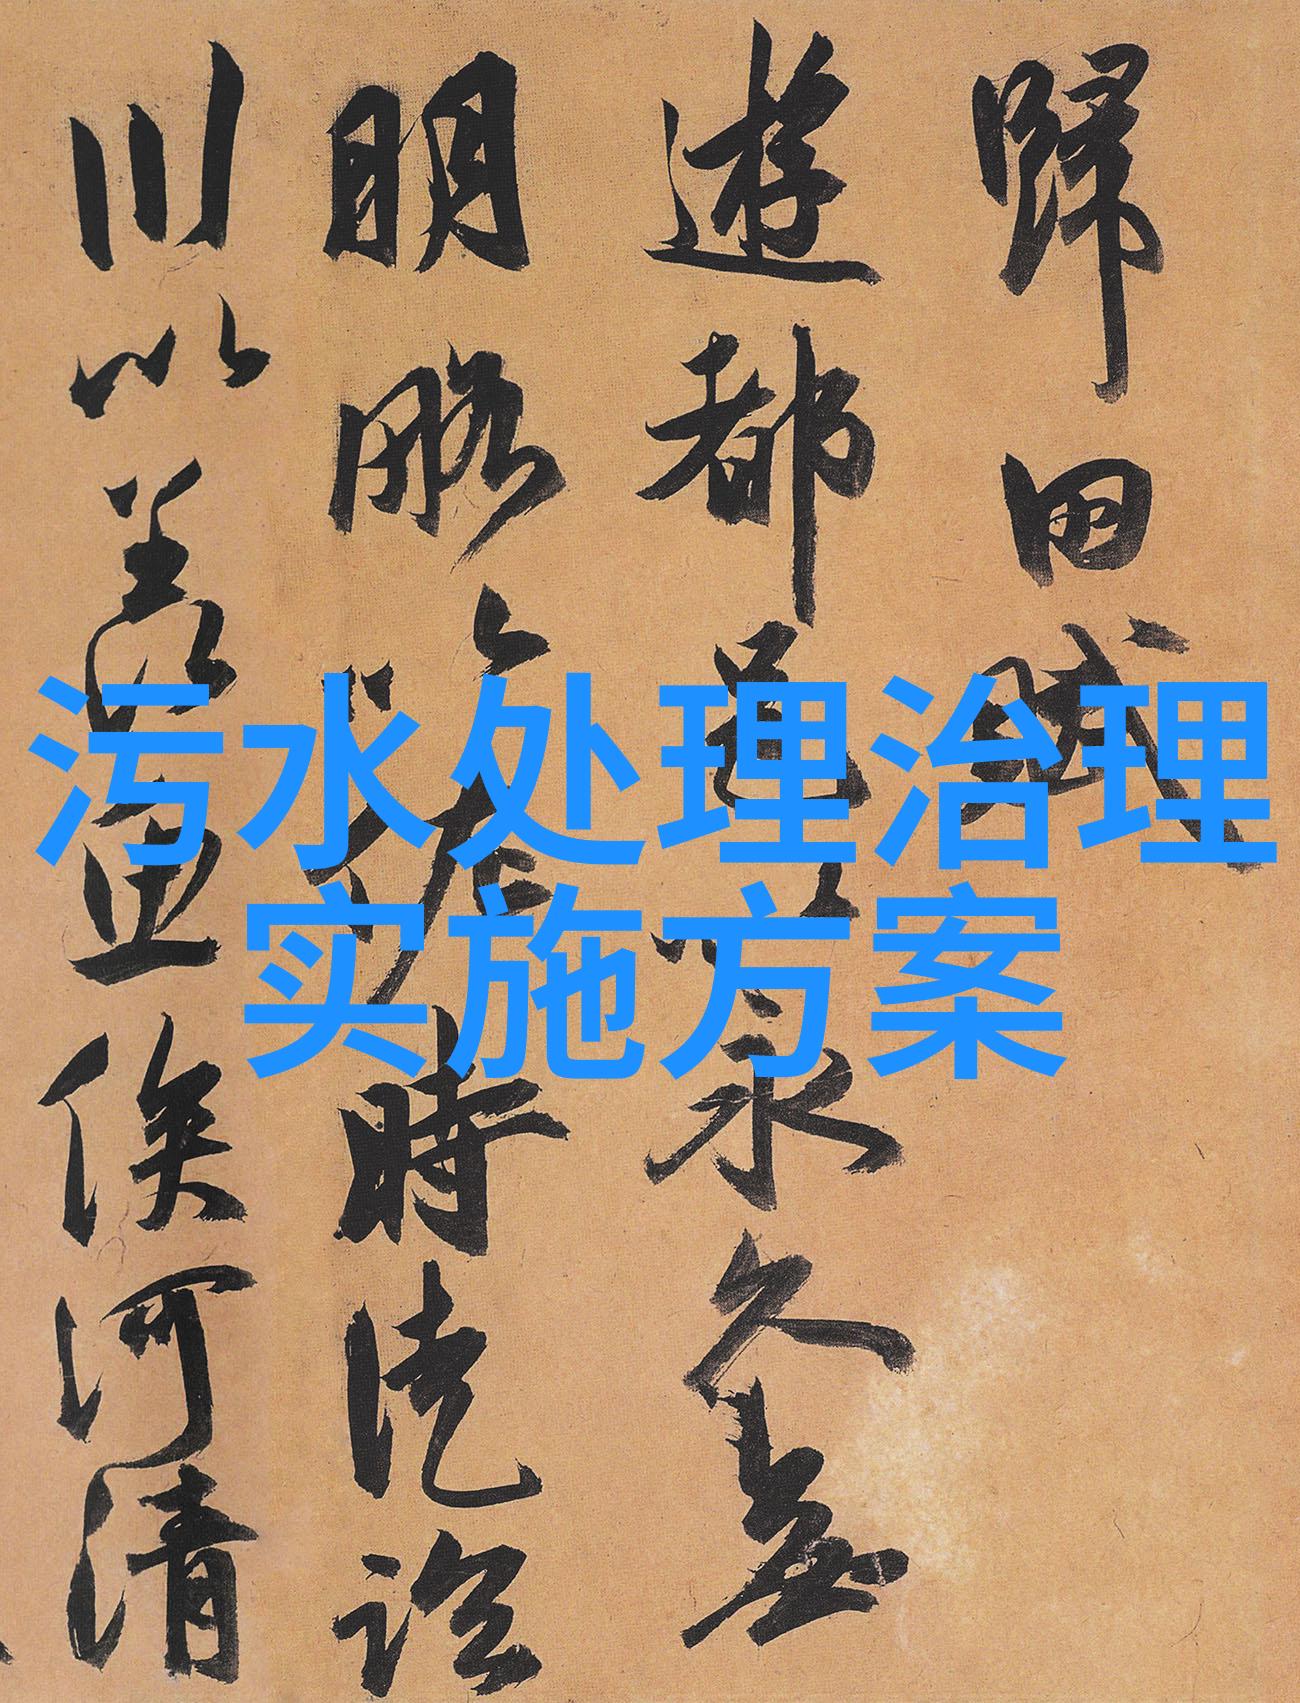 污水处理治理
实施方案
歸田賦
遊都邑以永久無
明略以佐時徒臨
川以羨魚俟河清